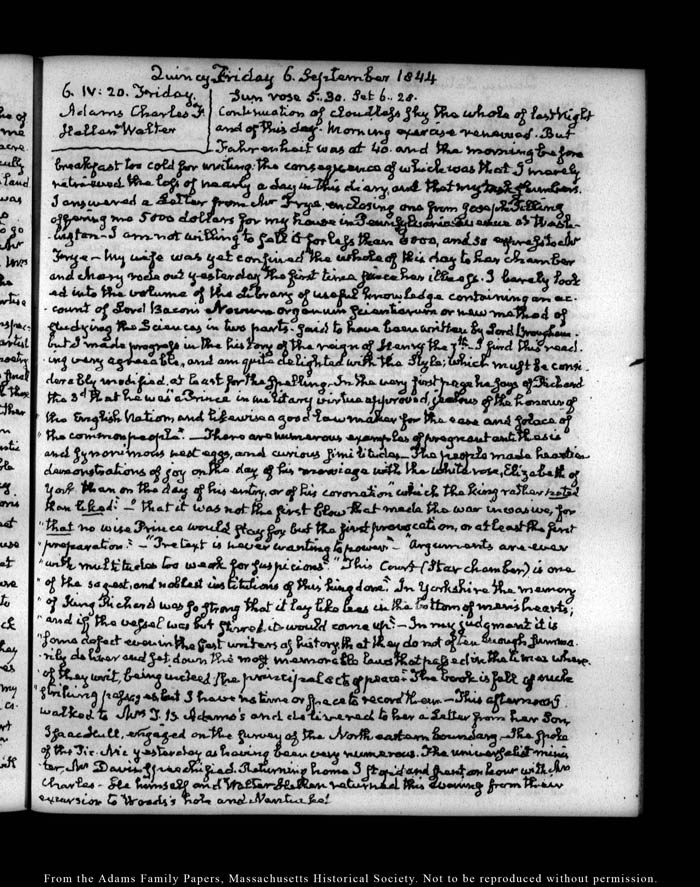 Quincy Friday 6. September 1844
6. IV: 20. Friday.
Adams Charles F
Hellen Walter
Sun rose 5.30. Set 6.28.
Continuation of cloudless sky the whole of last Night
and of this day. Morning exercise renewed. But
Fahrenheit was at 40. and the morning before
breakfast too cold for writing. the consequence of which was that I merely
retrieved the loss of nearly a day in this diary, and that my numbers.
I answered a Letter from Mr Frye, enclosing one from Joseph
offering me 5000 dollars for my house in Pennsylvania avenue at Wash-
ington. I am not willing to sell it for less than 6000, and so express to Mr
Frye — my wife was yet confined the whole of this day to her chamber
and Mary rode out yesterday the first time since her illness. I barely look
ed into the volume of the Library of useful knowledge containing an ac-
count of Lord Bacons Novum organum Scientiarum or new method of
studying the Sciences in two parts. said to have been written by Lord Brougham.
but I made progress in the history of the reign of Henry the 7th. I find this read-
ing very agreeable, and am quite delighted with the style; which must be consi-
derably modified, at least for the spelling. In the very first page he says of Richard
the 3d that he was "a Prince in military virtue approved, jealous of the honour of
"the English Nation, and likewise a good law maker for the ease and solace of
"the common people". — There are numerous examples of pregnant antithesis
and synonimous, and curious similitudes — The people made heartier
demonstrations of joy on the day of his marriage with the white rose, Elizabeth of
York than on the day of his entry, or of his coronation which the king rather noted
than liked:" — "that it was not the first blow that made the war invasive, for
"that no wise Prince would stay for but the first provocation, or at least the first
preparation." — "Pretext is never wanting to power" — "Arguments are ever
"with multitudes too weak for suspicions". "This Court (Star chamber) is one
"of the sagest, and noblest institutions of this kingdom". In Yorkshire the memory
"of King Richard was so strong that it lay like lees in the bottom of men's hearts;
"and if the vessel was but stirred it would come up." — In my judgment it is
"some defect even in the best writers of history, that they do not often enough summa-
"rily deliver and set down the most memorable laws that passed in the times where-
of they writ, being indeed the principal acts of peace". The book is full of such
striking passages but I have no time or space to record them — This afternoon I
walked to Mrs T. B. Adams's and delivered to her a Letter from her Son,
Isaac Hull, engaged on the survey of the North eastern boundary — She spoke
of the Pic-Nic yesterday as having been very numerous. The universalist minis-
ter, Mr Davis officiated. Returning home I stop'd and spent an hour with Mrs
Charles — He himself and Walter Hellen returned this evening from their
excursion to Woods's hole and Nantucket
From the Adams Family Papers, Massachusetts Historical Society. Not to be reproduced without permission.